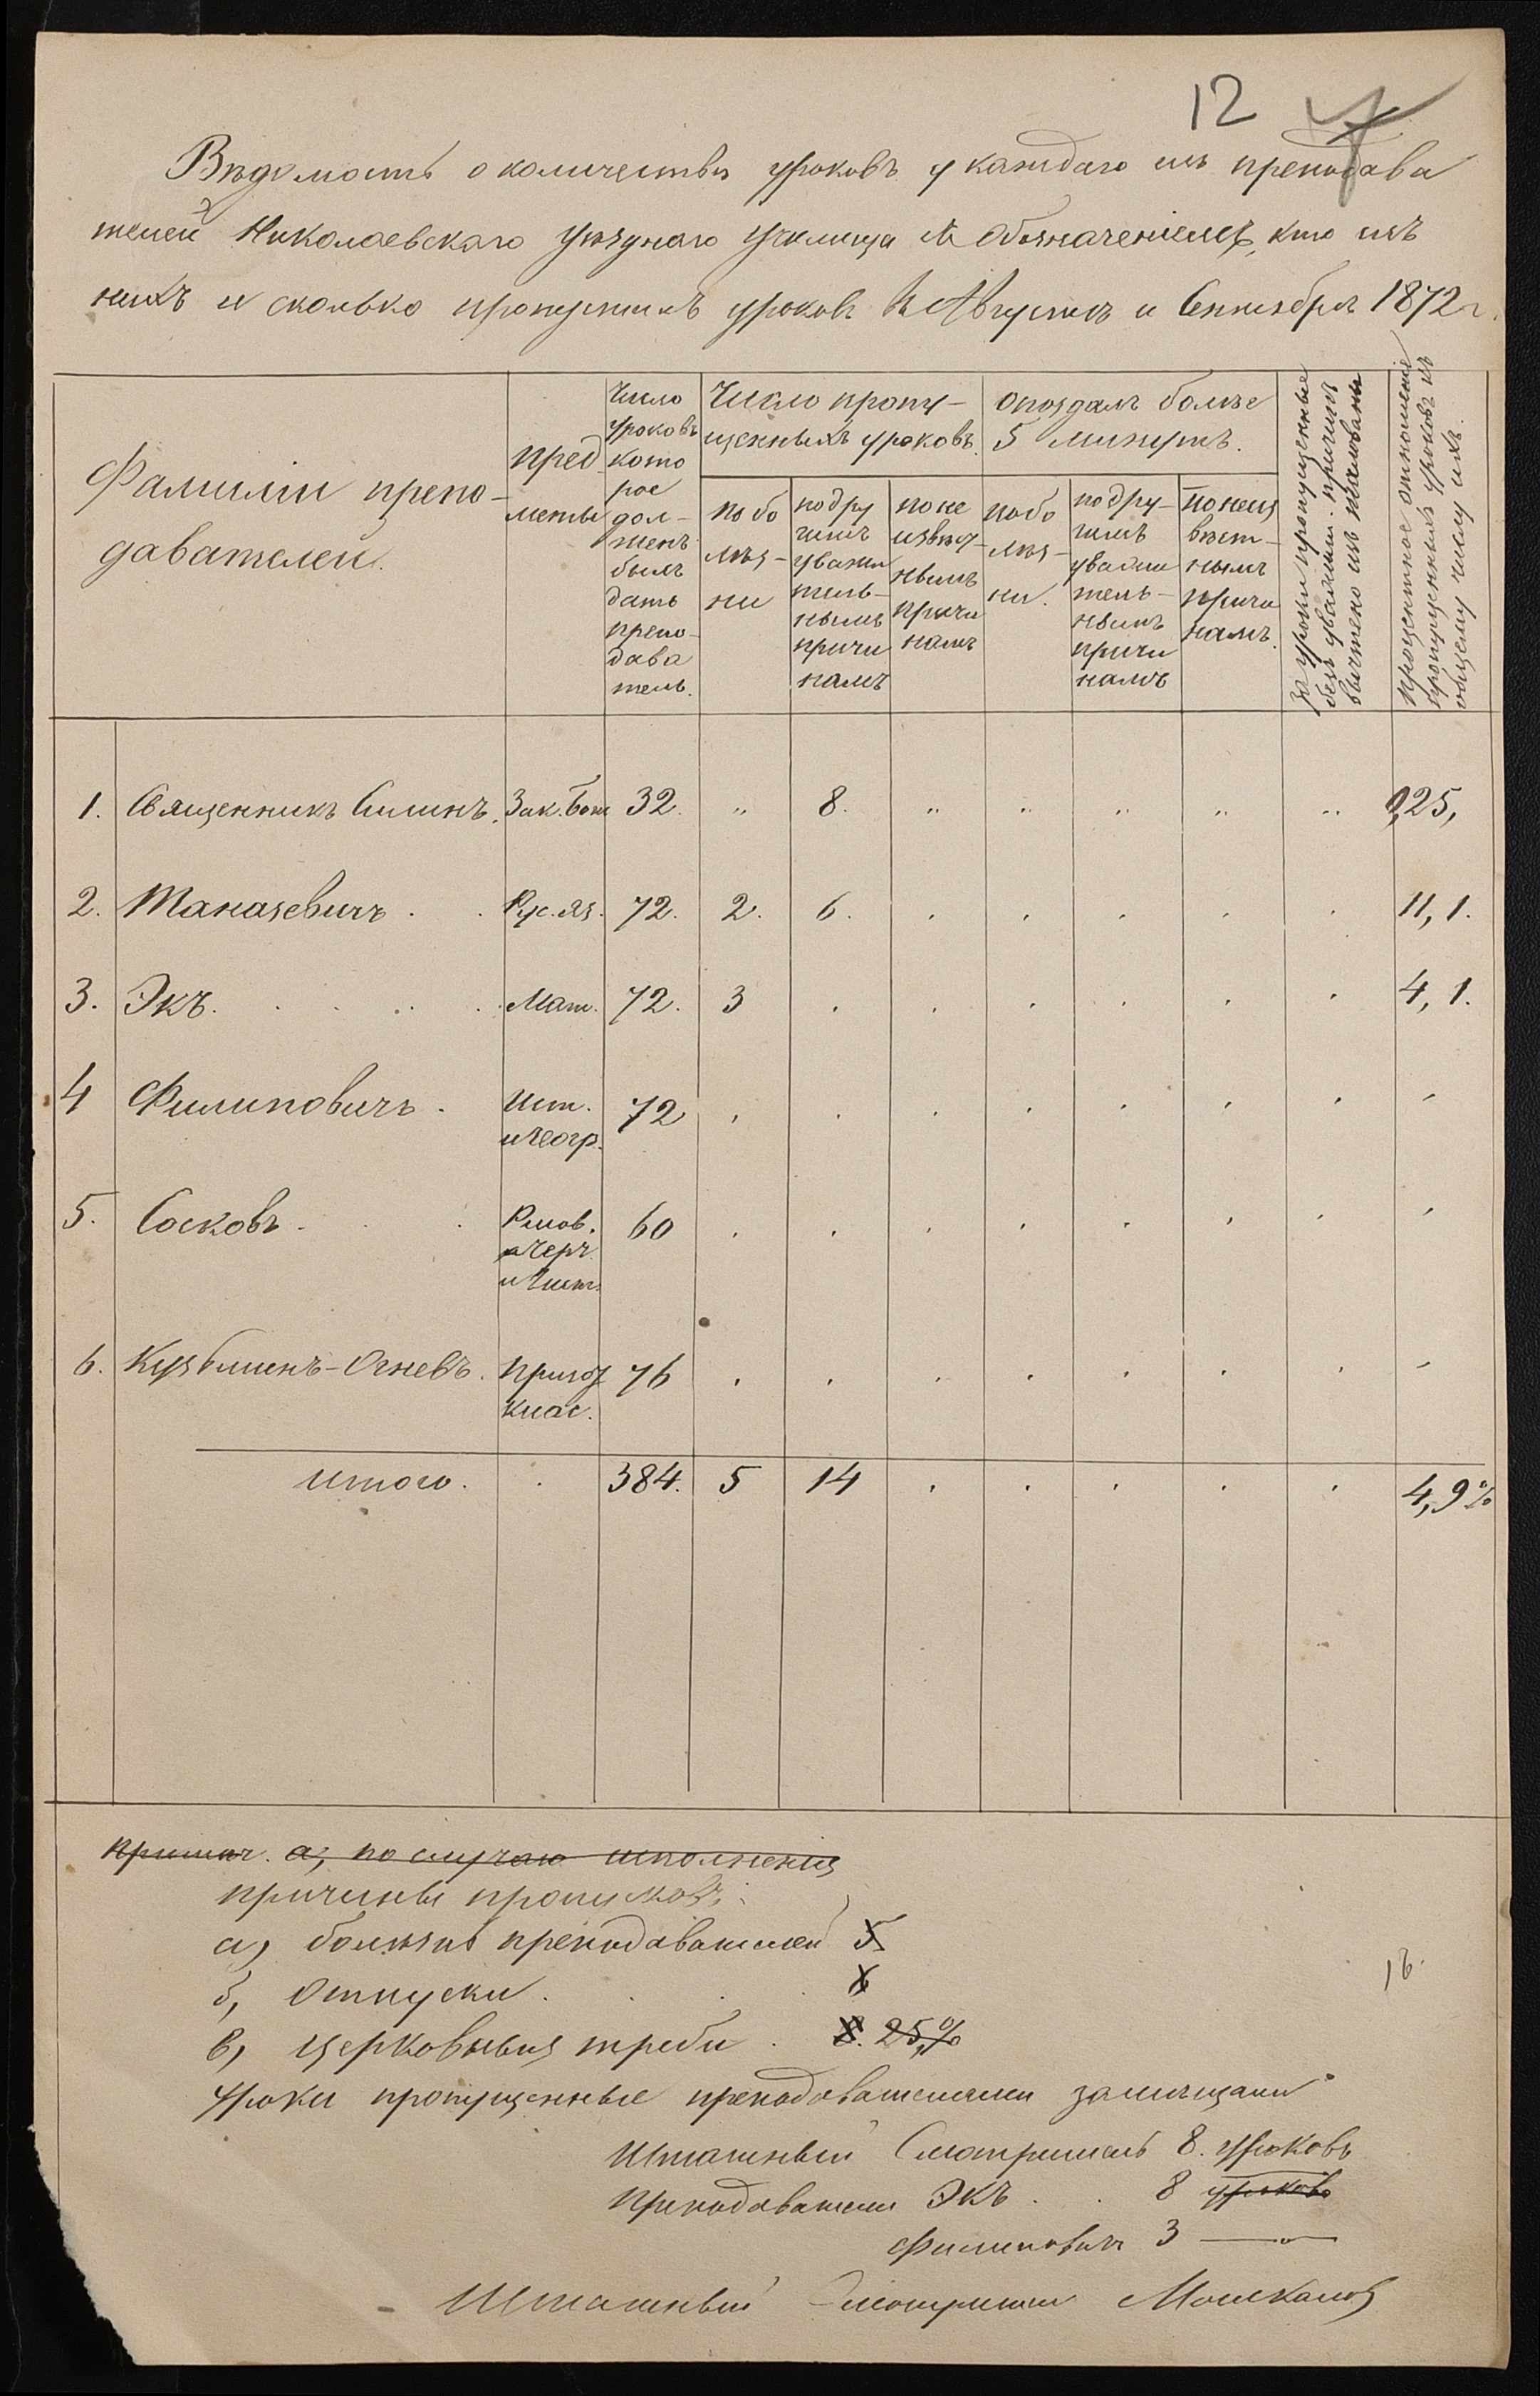 12
Вѣдомость о количествѣ уроковъ у каждаго изъ препода̀ва
телей Николаевскаго уѣзднаго училища съ обозначеніемъ, кто изъ
нихъ и сколько пропустилъ уроковъ въ Августѣ и Сентябрѣ 1872 г.
Фамиліи препо-
давателей.
Пред
меты
Число
уроковъ
кото
рое
дол-
женъ
былъ
дать
препо-
дава
тель.
Число пропу-
щенныхъ уроковъ.
по бо
лѣз-
ни
по дру
гимъ
уважи
тель-
нымъ
причи
намъ
по не
извѣст-
нымъ
причи
намъ
опоздалъ болѣе
5 минутъ.
по бо
лѣз-
ни.
по дру-
гимъ
уважи
тель-
нымъ
причи
намъ
по неиз
вѣст-
нымъ
причи
намъ.
за уроки пропущенные
безъ уважит. причинъ
вычтено изъ жалованья
процентное отношеніе
пропущенныхъ уроковъ къ
общему числу ихъ.
1. Священникъ Силинъ. Зак. Бож 32. „ 8. „ „ „ „ „ 0,25,
2. Таназевичъ . . Рус. яз. 72. 2. 6. . . . . . 11, 1.
3. Экъ. . . . . Мат. 72. 3 . . . . . . 4, 1.
4 Филиповичъ . Ист. 72 . . . . . . . -
и Геогр.
5. Сосковъ . . Рисов. 60 . . . . . . . -
и Черч.
и Чист.
6. Кузьминъ-Огневъ. Пригот 76 . . . . . . . -
Клас.
Итого. . 384. 5 14 . . . . . 4,9%
Примѣч. а, по случаю исполненія
Причины пропусковъ:
а, болѣзнь преподавателей 5
б, Отпуски . . . 6
в, церковныя требы . 8. 25,%
16.
Уроки пропущенные преподавателями замѣщали
Штатный Смотритель 8. уроковъ
Преподаватели Экъ . . 8 уроковъ
Филиповичъ 3 — „ —
Штатный Смотритель